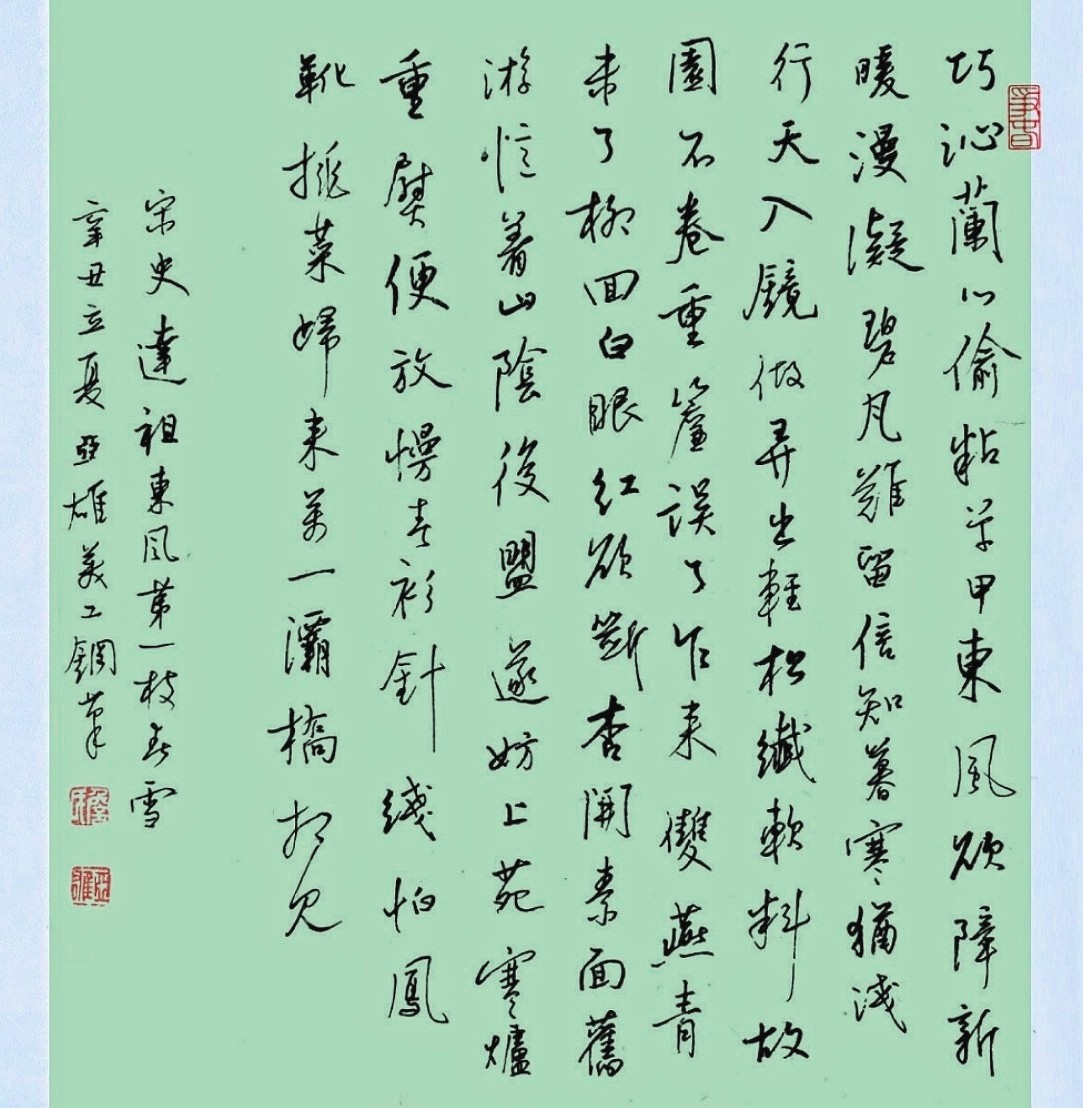 巧沁蘭心偷粘草甲東風欲障新
暖漫凝碧瓦難留信知暮寒猶淺
行天入鏡做弄出輕松纖軟料故
園不卷重簾誤了乍來雙燕青
未了柳回白眼紅欲斷杏開素面舊
游憶着山陰後盟遂妨上苑寒爐
重熨便放慢春衫針綫怕鳳
靴挑菜歸來萬一灞橋相見
宋史達祖東風第一枝春雪
辛丑立夏亞雄美工鋼筆
亞雄